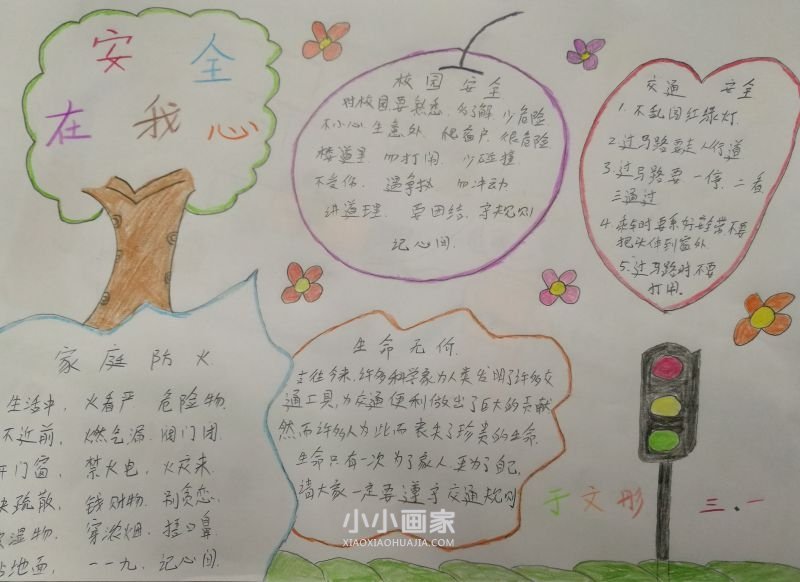 安全
在我心
校园安全
对校园要熟悉 多了解 少危险
不小心 生意外 爬窗户 很危险
楼道里 勿打闹 少碰撞
不受伤 遇争执 勿冲动
讲道理 要团结 守规则
记心间.
交通安全
1. 不乱闯红绿灯.
2. 过马路要走人行道
3. 过马路要一停、二看
三通过
4. 乘车时要系好安全带不要
把头伸到窗外
5. 过马路时不要
打闹。
家庭防火
生活中, 火看严 危险物.
不近前, 燃气漏. 阀门闭.
开门窗, 禁火电, 火灾来.
快疏散, 钱财物. 别贪恋.
湿物. 穿浓烟. 捂口鼻
贴地面, 一一九、记心间.
生命无价.
古往今来, 许多科学家为人类发明了许多交
通工具, 为交通便利做出了巨大的贡献
然而许多人为此而丧失了珍贵的生命.
生命只有一次为了家人 更为了自己,
请大家一定要遵守交通规则
于文彤 三.一
小小画家
XIAOXIAOHUAJIA.COM